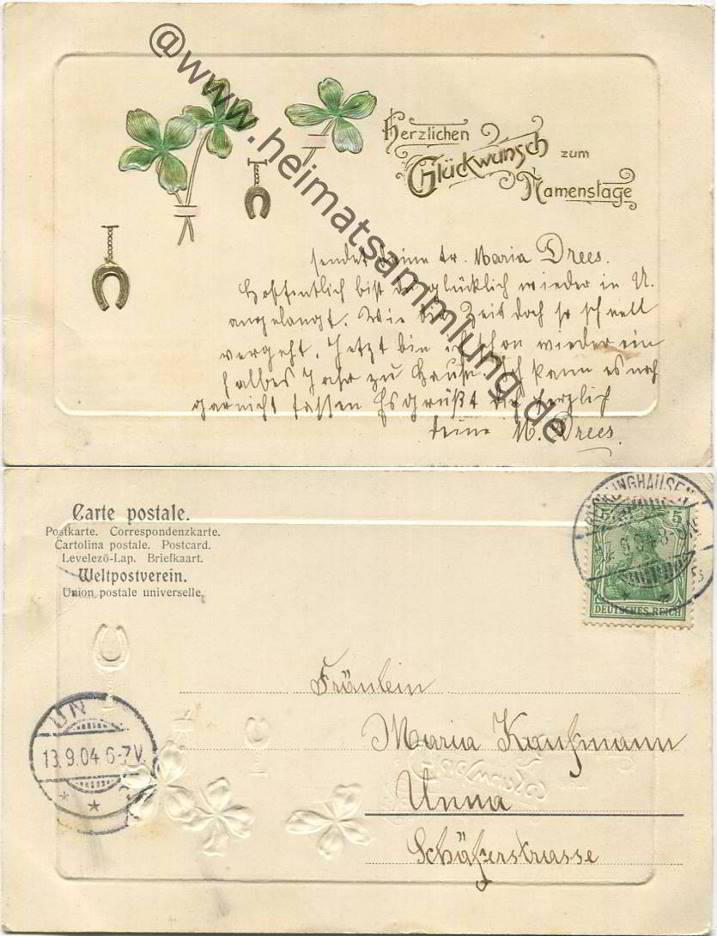 @www.heimatsammlung.de
Herzlichen
Glückwunsch zum
Namenstage
sendet Deine tr. Maria Drees.
Hoffentlich bist du glücklich wieder in U.
angelangt. Wie die Zeit doch so schnell
vergeht. Jetzt bin ich schon wieder ein
halbes Jahr zu Hause. Ich kann es noch
garnicht fassen Es grüßt dich herzlich
deine M. Drees.
Carte postale.
Postkarte. Correspondenzkarte.
Cartolina postale. Postcard.
Levelező-Lap. Briefkaart.
Weltpostverein.
Union postale universelle.
RECKLINGHAUSEN
5 5
DEUTSCHES REICH
UN
13.9.04 6-7V.
* *
Fräulein
Maria Kaufmann
Unna
Schäferstrasse